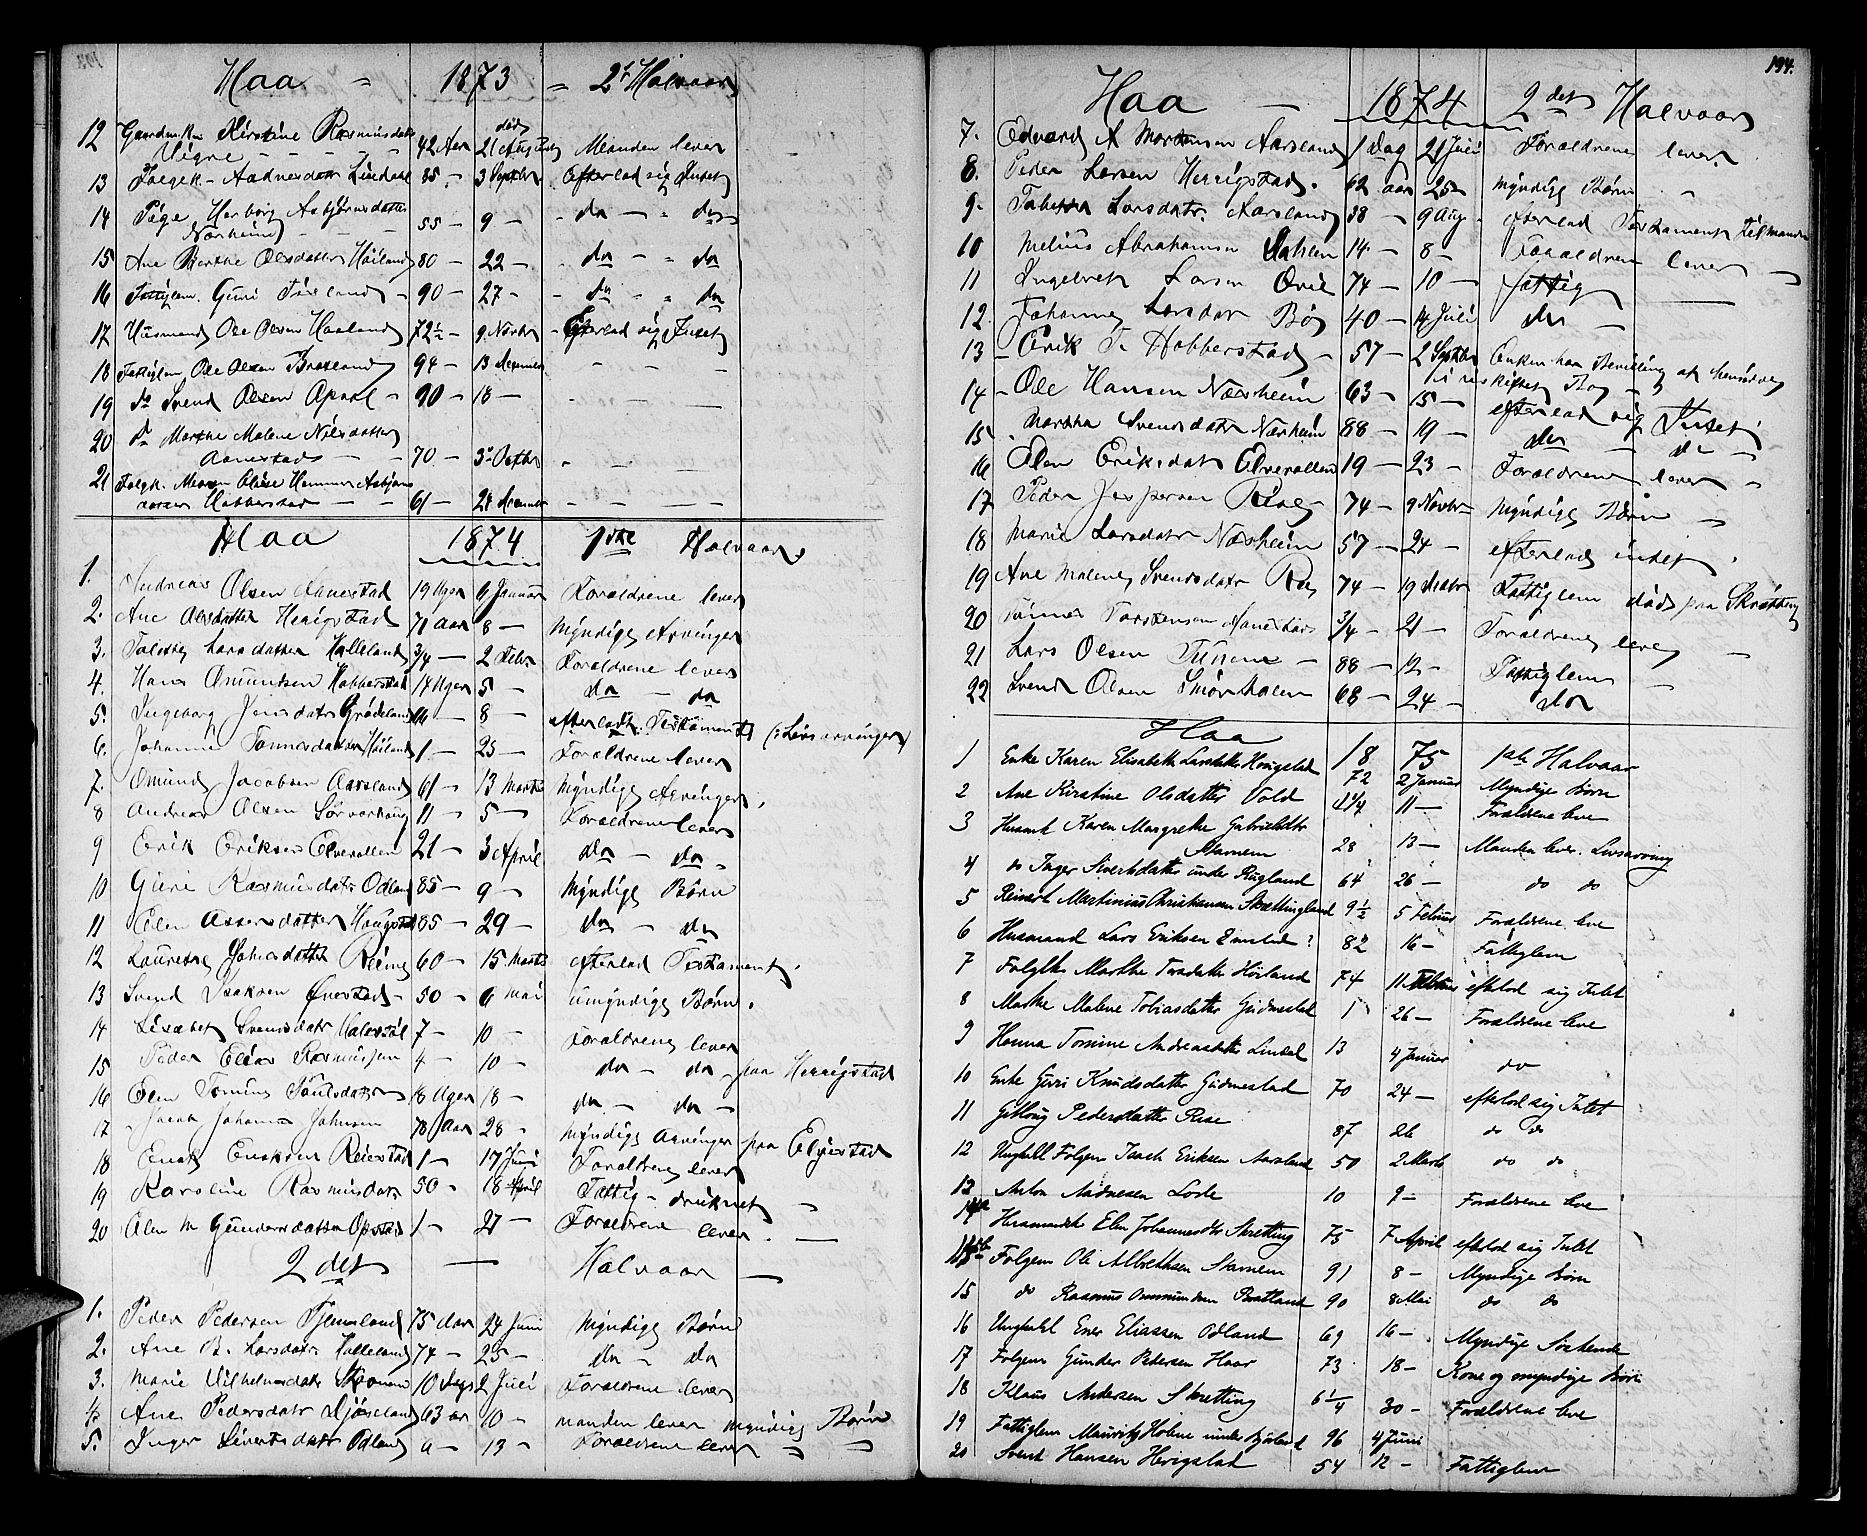 Haa - 1873 - 2t Halvaar
12 Gaardmk. Kirstine Rasmusdatr
Vigre - 42 Aar død 21 August Manden lever
13 Folgek. Aadnesdatr Lindahl 85 - 3 Septbr Efterlod sig Intet
14 Pige Herborg Asbjørnsdatter
Nærheim 55 - 9 - do - do
15 Ane Berthe Olsdatter Høiland 80 - 22 - do - do
16 Fattiglem. Guri 90 - 27 - do - do
17 Husmand Ole Olsen Haaland 72½ - 9 Novbr - Efterlod sig Intet
18 Fattiglem Ole Olsen 94 - 13 December - - -
19 do Svend Olsen 90 - 18 - - - -
20 do Marthe Malene Nilsdatter
Aanestad 70 - 3 - - -
21 Folgk.
Hobberstad 61 - 28 December - - -
Haa 1874 1ste Halvaar
1. Andreas Olsen Aanestad 19 Uger 6 Januar Forældrene lever
2. Ane Olsdatter Herigstad 71 Aar 8 - Myndige Arvinger
3. Larsdatter Halleland 3/4 - 2 Febr Forældrene lever
4. Hans Omundsen Hobberstad 14 Uger 5 - do - do
5. Ingeborg Jonsdatr Grødeland 16 - 8 - efterladt Testament (: Livsarvinger)
6. Johanne Tonnesdatter Høiland 1 - 25 - Forældrene lever
7. Omund Jacobsen Aarsland 61 - 13 Marts Myndige Arvinger
8 Andreas Olsen Sørvarhaug 11 - 5 - Forældrene lever
9 Erik Eriksen Elverallen 21 - 3 April do - do
10 Guri Rasmusdatr Odland 85 - 9 - Myndige Børn
11 Elen Assersdatter Haugstad 85 - 29 - do - do
12 Lauretze Johnsdatter Reime 60 - 15 Marts efterlod Testament
13 Svend Isaksen 50 - 6 Mai umyndige Børn
14 Lisabet Svensdatr 7 - 10 - Forældrene lever
15 Peder Elias Rasmussen 4 - 10 - do - do paa Herrigstad
16 Elen Tomine Poulsdatter 18 Uger 18 - do - do -
17 Jacob Johannes Johnsen 78 Aar 28 - Myndige Arvinger paa
18 Eriksen Reiestad 1 - 17 Juni Forældrene lever
19 Karoline Rasmusdatr 50 - 18 April Fattig - druknet -
20 Elen M Gundersdatter Opstad 1 - 27 - Forældrene lever -
2det - Halvaar -
1. Peder Pedersen Tjemsland 75 Aar 24 Juni Myndige Børn
2. Ane B. Larsdatr Halleland 74 - 25 - do - do
3. Marie Vilhelmsdatr 10 Dage 2 Juli Forældrene lever
4. Ane Pedersdatr 63 ar 10 - manden lever myndige Børn
5. Inger Sivertsdatr Odland - 13 - Forældrene lever - -
194.
Haa - 1874 2det Halvaar
7. Edvard A Mortensen Aarsland 1 Dag 21 Juli Forældrene lever
8. Peder Larsen Herrigstad 62 aar 25 - Myndige Børn
9. Larsdatr Aarsland 38 - 9 Aug. efterlod Testament til manden
10 Melius Abrahamsen 14 - 8 - Forældrene lever -
11 Ingebret Larsen 74 - 10 - fattig -
12. Johanne Larsdatr Bø 40 - 14 Juli do -
13 Erik T. Hobberstad - 57 - 2 Septbr Enken har Bevilling at hensidde
i uskiftet Bo -
14 - Ole Hansen Nærheim 63 - 15 - efterlod sig Intet
15. Martha Svensdatr Nærheim 88 - 19 - do - do -
16 Elen Eriksdatr Elverallen 19 - 23 - Forældrene lever -
17 Peder Jespersen 74 - 9 Novbr Myndige Børn -
18 Marie Larsdatr Nærheim 57 - 24 - efterlod intet.
19 Ane Malene Svensdatr 74 - 19 Decbr Fattiglem død paa
20 Torstensen Aanestad 3/4 - 21 - Forældrene lever -
21 Lars Olsen - 88 - 12 - Fattiglem -
22 Svend Olsen 68 - 24 - do
Haa
1875 1ste Halvaar
1 Enke Karen Elisabeth Larsdatter Herigstad 72 2 Januar Myndige Børn
2 Ane Kirstine Olsdatter Vold 4¼ 11 - Forældrene leve
3 Husmk Karen Margrethe Gabrielsdtr
Stavnem 28 13 - Manden lever. Livsarving
4 do Inger Sivertsdatter under Rugland 64 26 - do do
5 Reinert Martinius Christiansen Skrettingland 9½ 5 Februar Forældrene leve
6 Husmand Lars Eriksen 82 16 - Fattiglem
7 Folgk Marthe Høiland 74 11 Februar efterlod sig Intet
8 Marthe Malene Tobiasdatter Gudmestad 1 26 - Forældrene leve
9 Hanna Tomine Andreasdatter Lindal 13 4 Januar do
10 Enke Guri Knudsdatter Gudmestad 70 24 - efterlod sig Intet
11 Gitlaug Pedersdatter Risa 87 26 do do
12 Ungkl Folgem Isach Eriksen Aarsland 50 2 Marts do do
13 Anton Aadnesen Lode 10 9 - Forældrene leve
14a Husmandsk Elen Johannesdtr Skretting 75 7 April efterlod sig Intet
14b Folgem Ole Albrethsen Stavnem 91 8 - Myndige Børn
15 do Rasmus Ommundsen Bratland 90 8 Mai do do
16 Ungkl Ener Eliassen Odland 69 16 - Myndige Søskende
17 Folgem Gunder Pedersen Haar 73 18 - Kone og myndige Børn
18 Klaus Andersen Skretting 6¼ 30 - Forældrene leve
19 Fattiglem Mauritz Holene under 96 4 Juni
20 Svend Hansen Herigstad 54 12 - Fattiglem